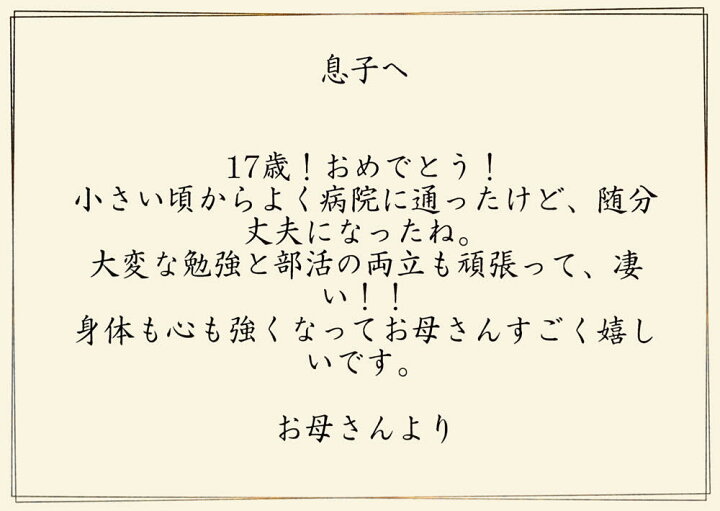 息子へ
17歳！おめでとう！
小さい頃からよく病院に通ったけど、随分
丈夫になったね。
大変な勉強と部活の両立も頑張って、凄
い！！
身体も心も強くなってお母さんすごく嬉し
いです。
お母さんより